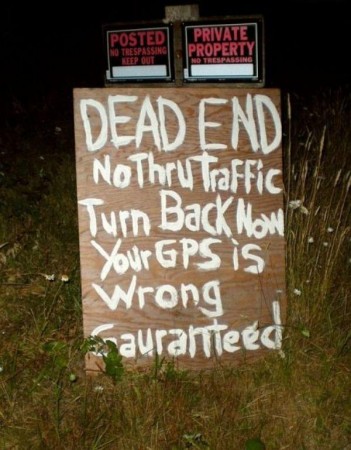 POSTED
NO TRESPASSING
KEEP OUT
PRIVATE
PROPERTY
NO TRESPASSING
DEAD END
No Thru Traffic
Turn Back Now
Your GPS is
Wrong
Gauranteed!